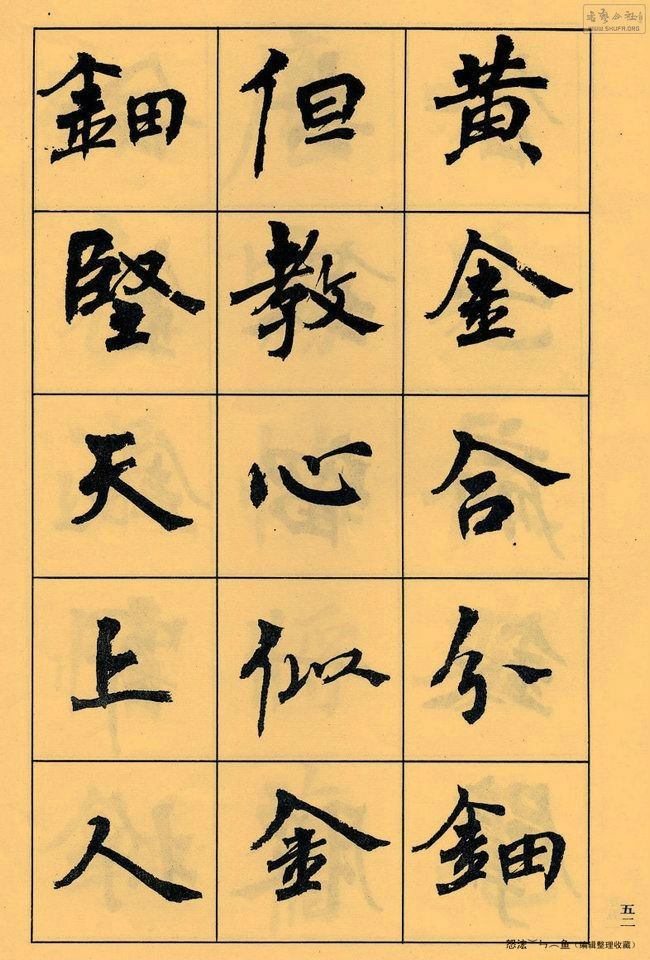 黄金合分鈿
但教心似金
鈿堅天上人
五二
WWW.SHUFA.ORG
（编辑整理收藏）